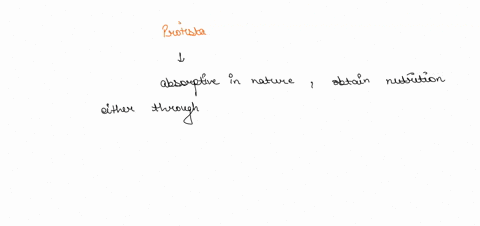 Protista
↓
absorptive in nature , obtain nutrition
either through